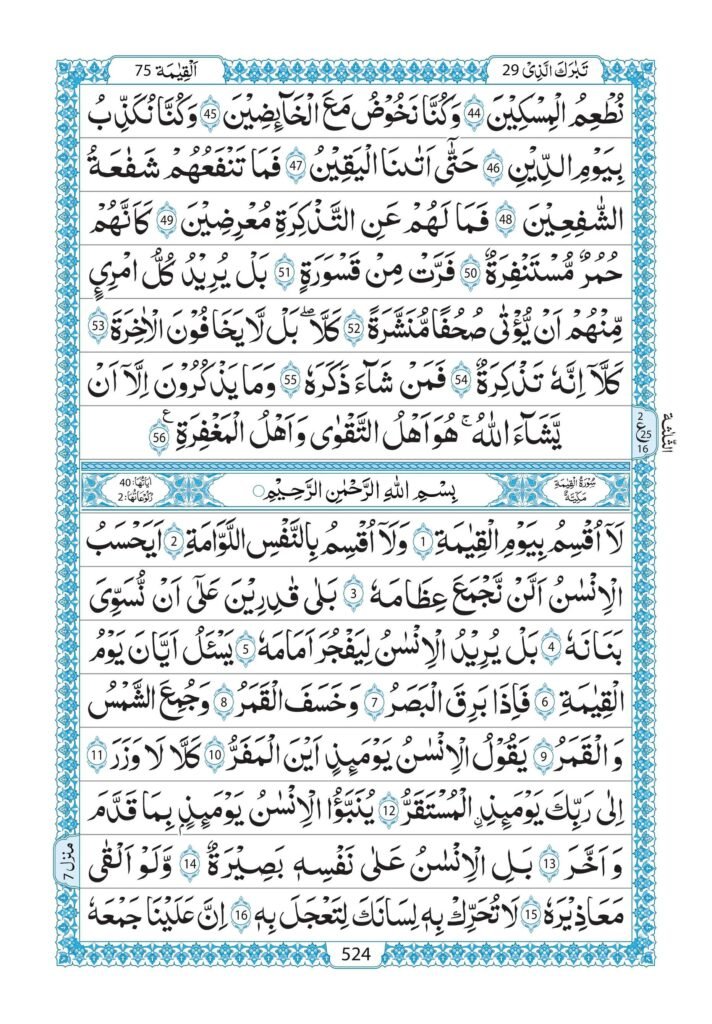 تَبٰرَكَ الَّذِیْ 29
اَلْقِیٰمَة 75
نُطْعِمُ الْمِسْكِیْنَ 44 وَكُنَّا نَخُوْضُ مَعَ الْخَآىِٕضِیْنَ 45 وَكُنَّا نُكَذِّبُ
بِیَوْمِ الدِّیْنِ 46 حَتّٰۤی اَتٰىنَا الْیَقِیْنُ 47 فَمَا تَنْفَعُهُمْ شَفَاعَةُ
الشّٰفِعِیْنَ 48 فَمَا لَهُمْ عَنِ التَّذْكِرَةِ مُعْرِضِیْنَ 49 كَاَنَّهُمْ
حُمُرٌ مُّسْتَنْفِرَةٌ 50 فَرَّتْ مِنْ قَسْوَرَةٍ 51 بَلْ یُرِیْدُ كُلُّ امْرِیٍٔ
مِّنْهُمْ اَنْ یُّؤْتٰی صُحُفًا مُّنَشَّرَةً 52 كَلَّا ؕ بَلْ لَّا یَخَافُوْنَ الْاٰخِرَةَ 53
كَلَّاۤ اِنَّهٗ تَذْكِرَةٌ 54 فَمَنْ شَآءَ ذَكَرَهٗ 55 وَمَا یَذْكُرُوْنَ اِلَّاۤ اَنْ
یَّشَآءَ اللّٰهُ ؕ هُوَ اَهْلُ التَّقْوٰی وَاَهْلُ الْمَغْفِرَةِ ع 56
2
ع 25
16
سُوْرَةُ الْقِیٰمَةِ مَكِّیَّةٌ
بِسْمِ اللّٰهِ الرَّحْمٰنِ الرَّحِیْمِ
اٰیَاتُهَا: 40 رُكُوْعَاتُهَا: 2
لَاۤ اُقْسِمُ بِیَوْمِ الْقِیٰمَةِ 1 وَلَاۤ اُقْسِمُ بِالنَّفْسِ اللَّوَّامَةِ 2 اَیَحْسَبُ
الْاِنْسٰنُ اَلَّنْ نَّجْمَعَ عِظَامَهٗ 3 بَلٰی قٰدِرِیْنَ عَلٰۤی اَنْ نُّسَوِّیَ
بَنَانَهٗ 4 بَلْ یُرِیْدُ الْاِنْسٰنُ لِیَفْجُرَ اَمَامَهٗ 5 یَسْـَٔلُ اَیَّانَ یَوْمُ
الْقِیٰمَةِ 6 فَاِذَا بَرِقَ الْبَصَرُ 7 وَخَسَفَ الْقَمَرُ 8 وَجُمِعَ الشَّمْسُ
وَالْقَمَرُ 9 یَقُوْلُ الْاِنْسٰنُ یَوْمَىِٕذٍ اَیْنَ الْمَفَرُّ 10 كَلَّا لَا وَزَرَ 11
اِلٰی رَبِّكَ یَوْمَىِٕذِ ِ۟الْمُسْتَقَرُّ 12 یُنَبَّؤُا الْاِنْسٰنُ یَوْمَىِٕذٍۭ بِمَا قَدَّمَ
وَاَخَّرَ 13 بَلِ الْاِنْسٰنُ عَلٰی نَفْسِهٖ بَصِیْرَةٌ 14 وَّلَوْ اَلْقٰی
مَعَاذِیْرَهٗ 15 لَا تُحَرِّكْ بِهٖ لِسَانَكَ لِتَعْجَلَ بِهٖ 16 اِنَّ عَلَیْنَا جَمْعَهٗ
منزل 7
524